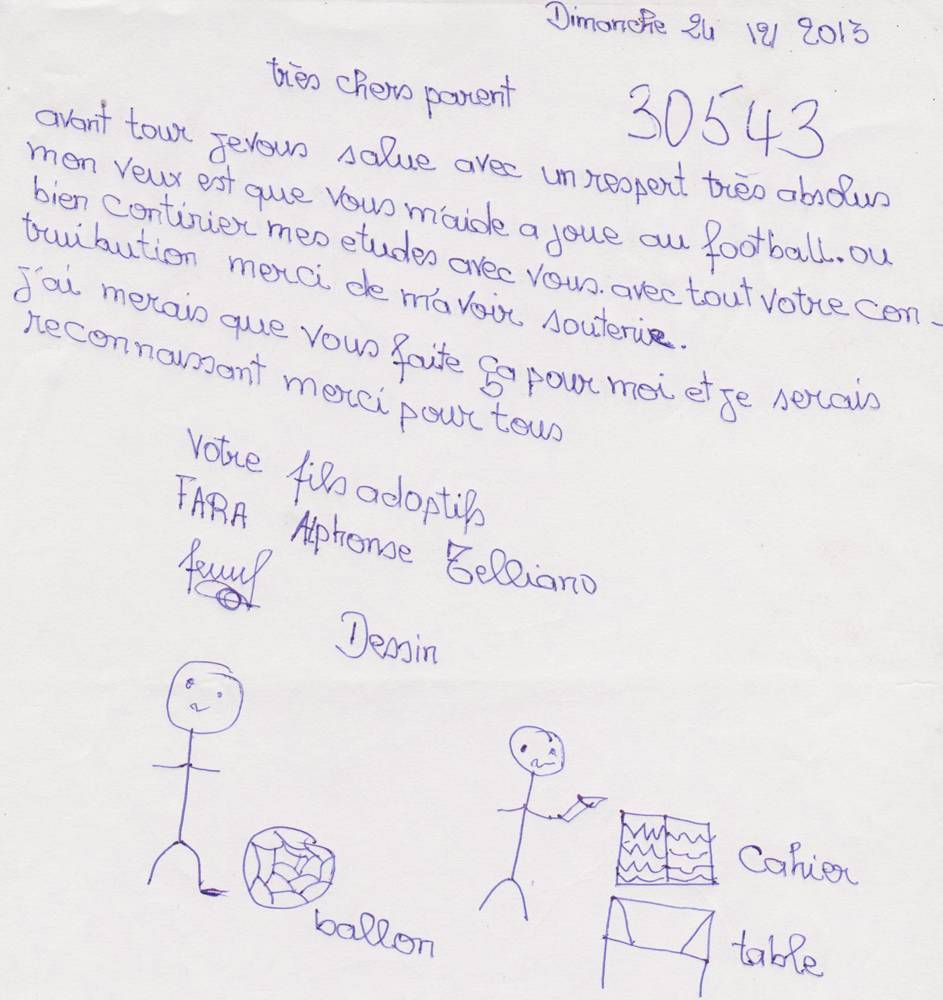 Dimanche 24 12/ 2013
très chers parent
30543
avant tour jevous salue avec un respert très absolus
mon veux est que vous m'aide a joue au football. ou
bien continier mes etudes avec vous. avec tout votre con-
truibution merci de m'avoir soutenie.
j'ai merais que vous faite ça pour moi et je serais
reconnaissant merci pour tous
Votre fils adoptifs
FARA Alphonse Telliano
Dessin
Cahier
ballon
table